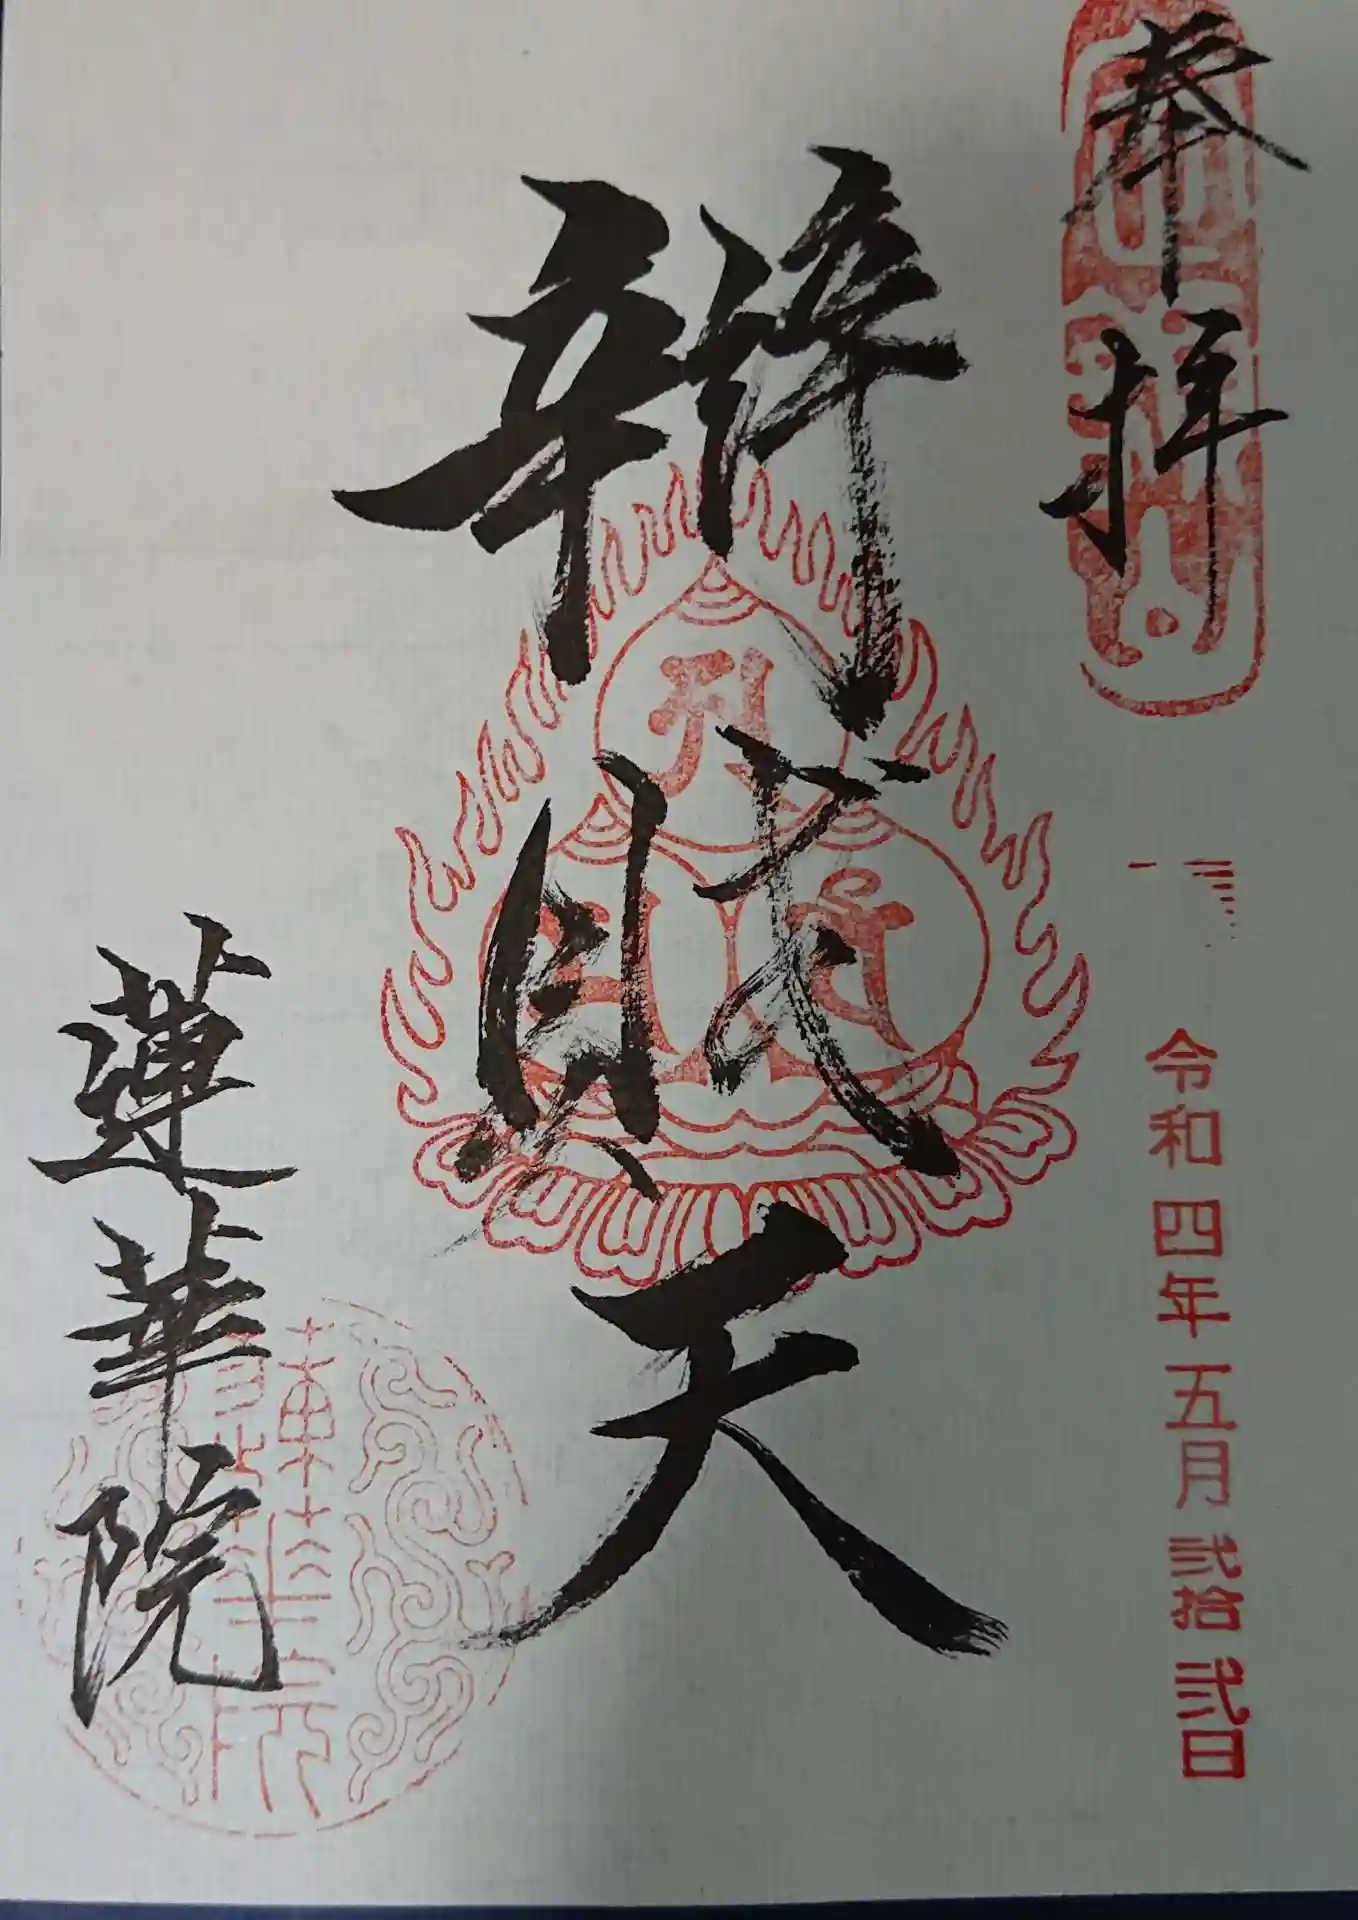 奉拝
令和四年五月弐拾弐日
辨財天
蓮華院